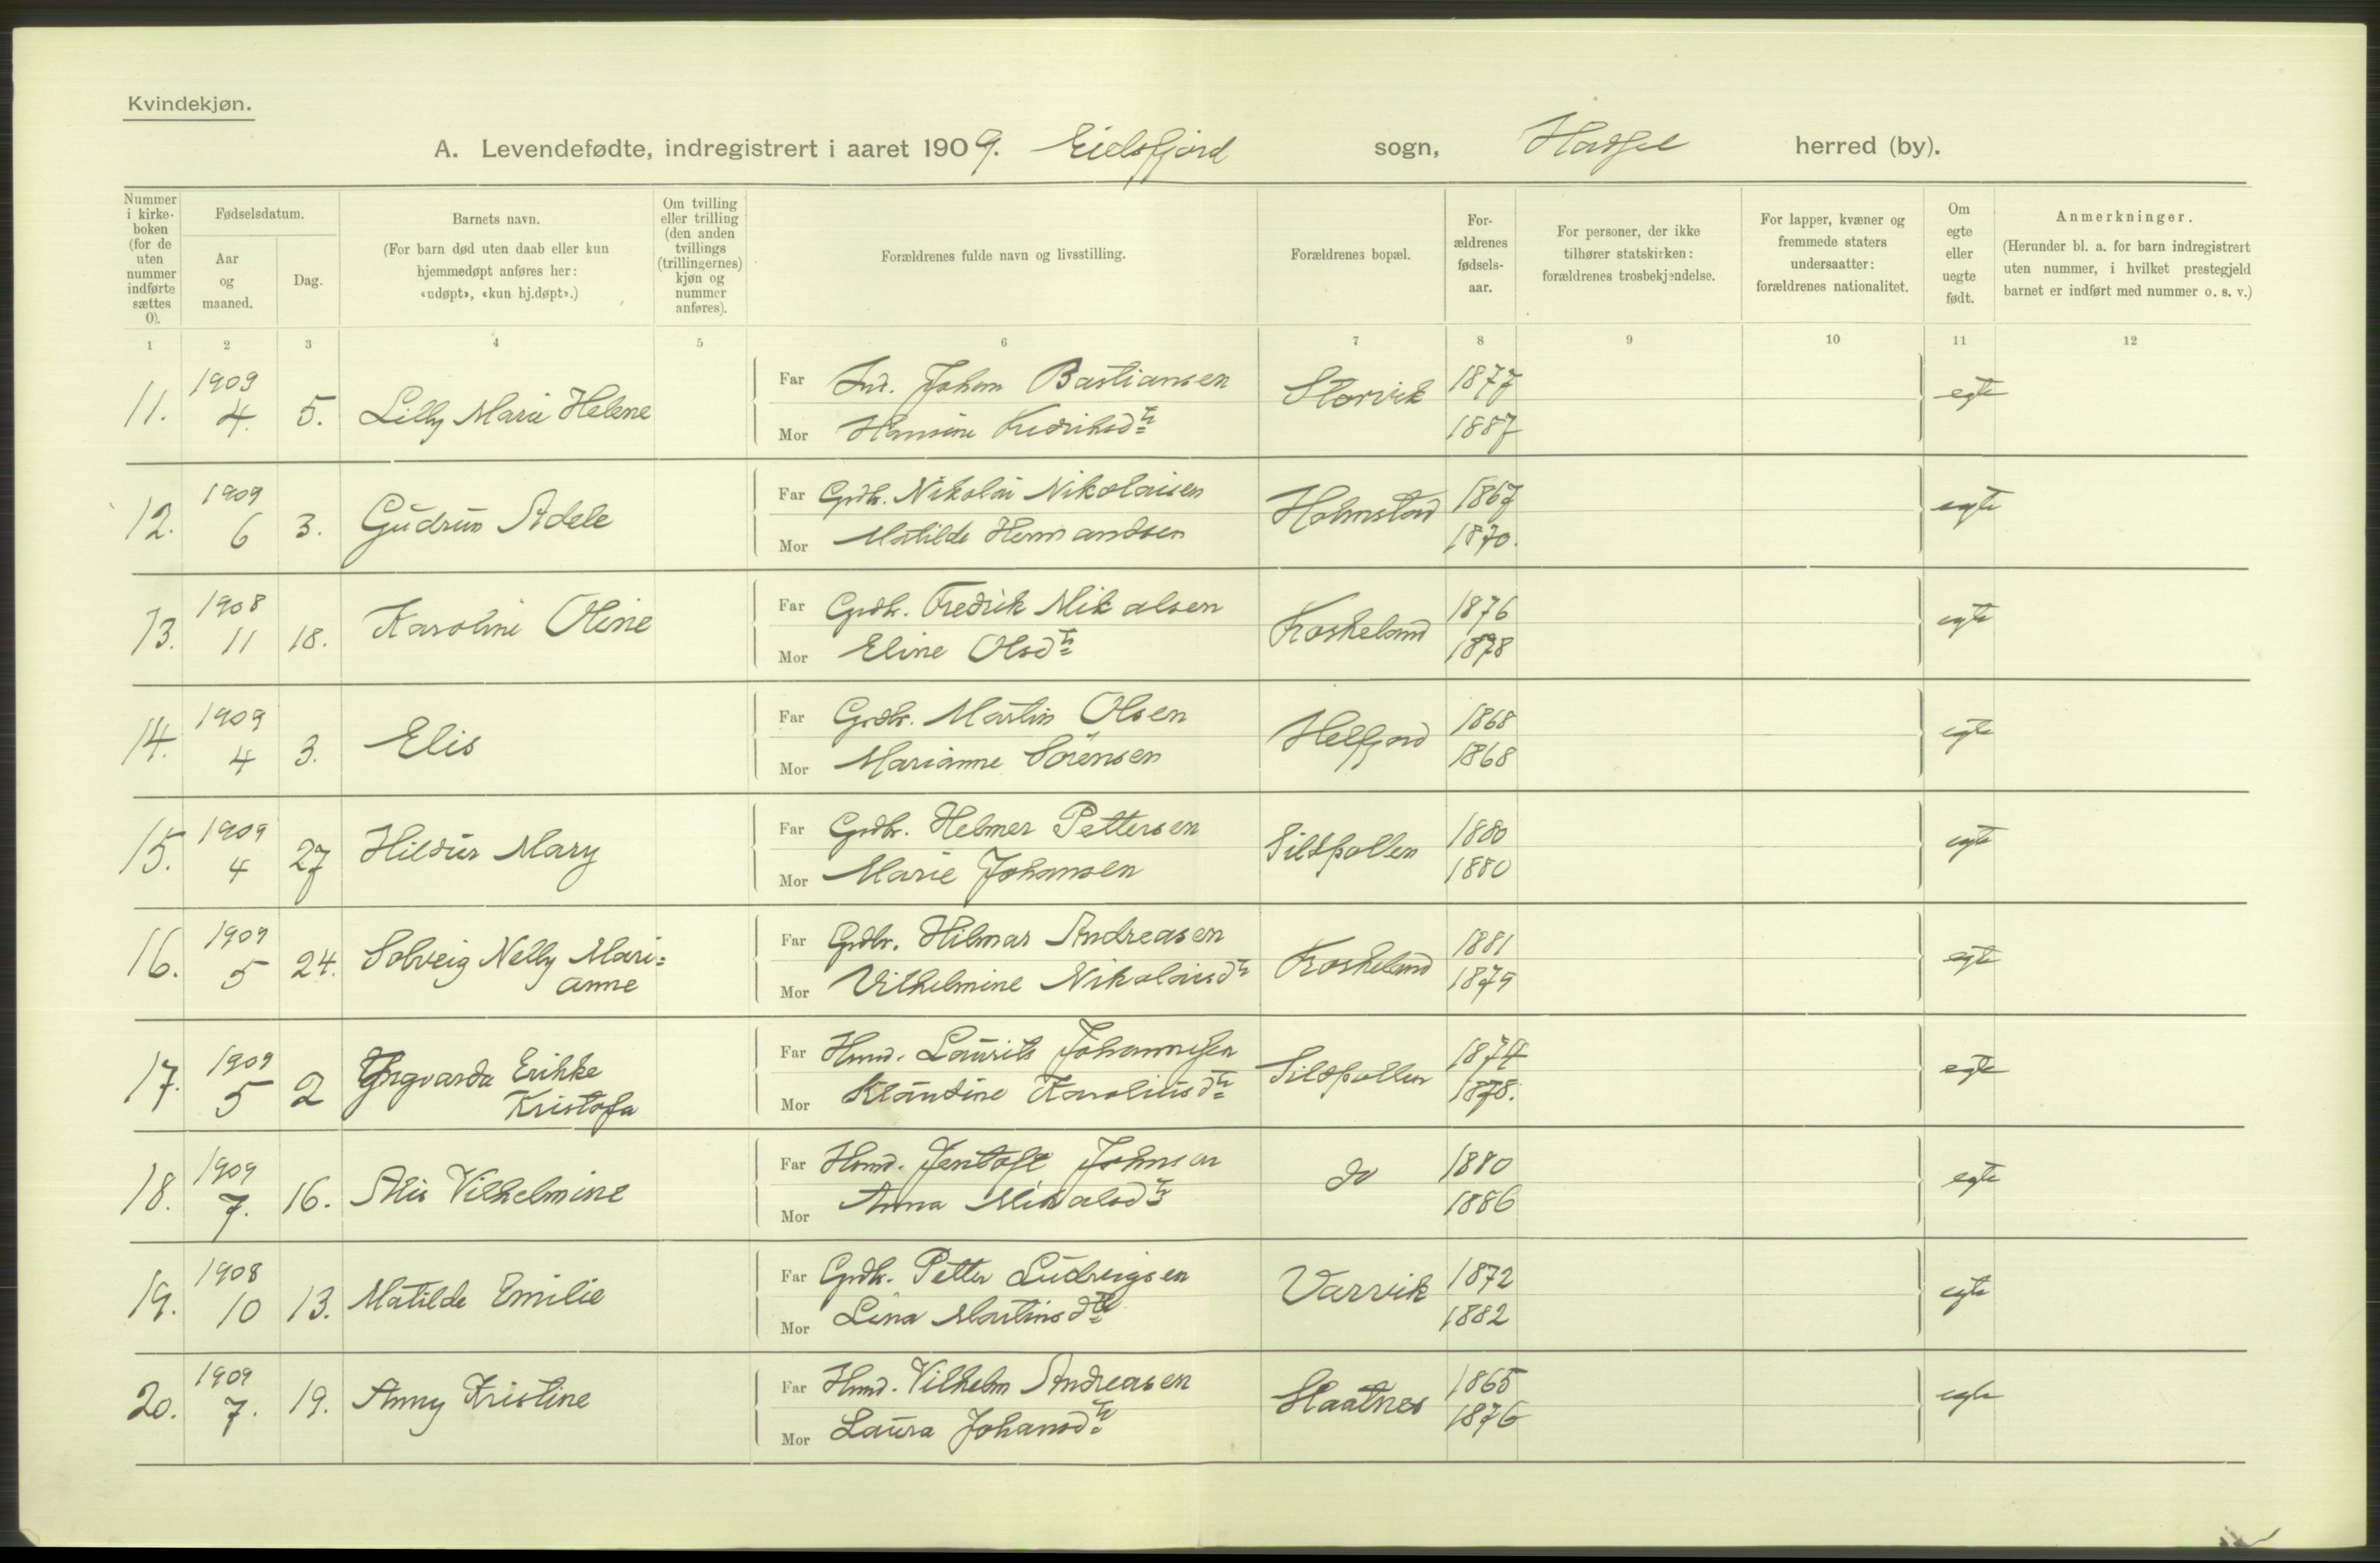 Kvindekjøn.
A. Levendefødte, indregistrert i aaret 1909. Eidsfjord sogn, Hadsel herred (by).
Nummer i kirke-boken (for de uten nummer indførte sættes 0).
Fødselsdatum.
Aar og maaned.
Dag.
Barnets navn.
(For barn død uten daab eller kun hjemmedøpt anføres her: «udøpt», «kun hj.døpt».)
Om tvilling eller trilling (den anden tvillings (trillingernes) kjøn og nummer anføres).
Forældrenes fulde navn og livsstilling.
Forældrenes bopæl.
For-ældrenes fødsels-aar.
For personer, der ikke tilhører statskirken: forældrenes trosbekjendelse.
For lapper, kvæner og fremmede staters undersaatter: forældrenes nationalitet.
Om egte eller uegte født.
Anmerkninger.
(Herunder bl. a. for barn indregistrert uten nummer, i hvilket prestegjeld barnet er indført med nummer o. s. v.)
1 2 3 4 5 6 7 8 9 10 11 12
11. 1909 4. 5. Lilly Marie Helene
Far Ind. Johan Bastiansen Storvik 1877 egte
Mor Hansine Fredriksdtr 1887
12. 1909 6 3. Gudrun Adele
Far Grdbr. Nikolai Nikolaisen Holmstad 1867 egte
Mor Matilde Hermandsen 1870.
13. 1908 11 18. Karoline Oline
Far Grdbr. Fredrik Mikalsen Froskeland 1876 egte
Mor Eline Olsdtr 1878
14. 1909 4 3. Elis
Far Grdbr. Martin Olsen Helfjord 1868 egte
Mor Marianne Sørensen 1868
15. 1909 4 27 Hildur Mary
Far Grdbr. Helmer Pettersen Sildpollen 1880 egte
Mor Marie Johansen 1880
16. 1909 5 24. Solveig Nelly Mari=
anne
Far Grdbr. Hilmar Andreasen Froskeland 1881 egte
Mor Vilhelmine Nikolaisdtr 1879
17. 1909 5 2 Yngvarda Erikke
Kristofa
Far Hmd. Laurits Johannesen Sildpollen 1874 egte
Mor Klaudine Karoliusdtr 1878.
18. 1909 7. 16. Vilhelmine
Far Hmd. Jentoft Johnsen do 1880 egte
Mor Anna Mikalsdtr 1886
19. 1908 10 13. Matilde Emilie
Far Grdbr. Petter Ludvigsen Varvik 1872 egte
Mor Lina Martinsdtr 1882
20. 1909 7. 19. Anny Kristine
Far Hmd. Vilhelm Andreasen Slaatnes 1865 egte
Mor Laura Johansdtr 1876